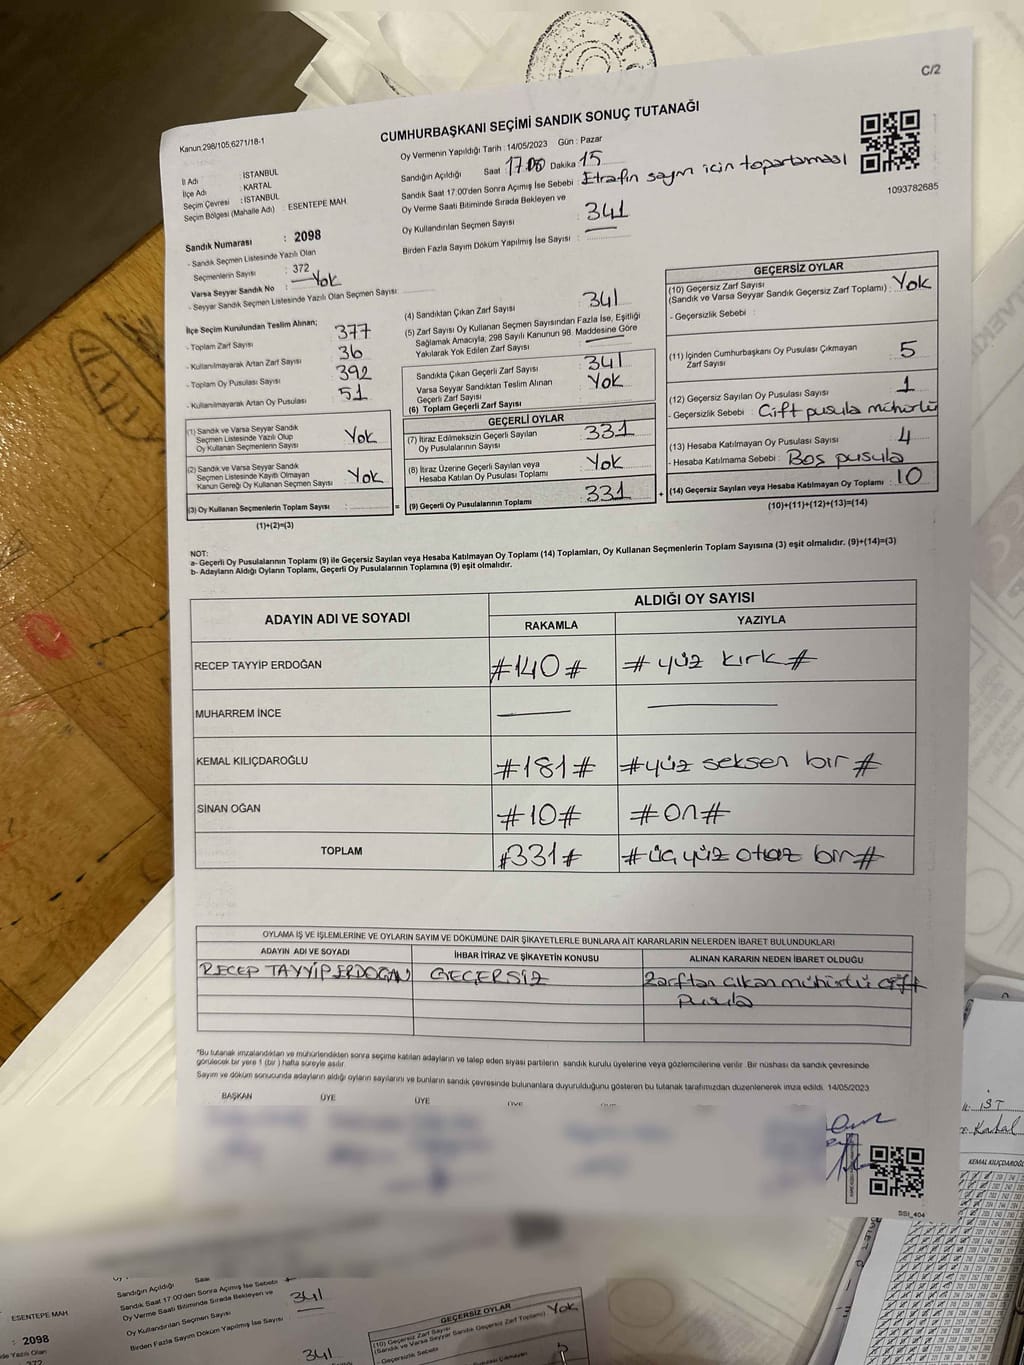 C/2
Kanun:298/105,6271/18-1
CUMHURBAŞKANI SEÇİMİ SANDIK SONUÇ TUTANAĞI
İl Adı : İSTANBUL
İlçe Adı : KARTAL
Seçim Çevresi : İSTANBUL
Seçim Bölgesi (Mahalle Adı) : ESENTEPE MAH.
Oy Vermenin Yapıldığı Tarih : 14/05/2023 Gün : Pazar
Sandığın Açıldığı Saat : 17.00 Dakika : 15
Sandık Saat 17:00'den Sonra Açımış İse Sebebi : Etrafın sayım için toparlaması
Oy Verme Saati Bitiminde Sırada Bekleyen ve
Oy Kullandırılan Seçmen Sayısı : 341
Birden Fazla Sayım Döküm Yapılmış İse Sayısı :
1093782685
Sandık Numarası : 2098
- Sandık Seçmen Listesinde Yazılı Olan
Seçmenlerin Sayısı : 372
Varsa Seyyar Sandık No : Yok
- Seyyar Sandık Seçmen Listesinde Yazılı Olan Seçmen Sayısı:
İlçe Seçim Kurulundan Teslim Alınan;
- Toplam Zarf Sayısı 377
- Kullanılmayarak Artan Zarf Sayısı 36
- Toplam Oy Pusulası Sayısı 392
- Kullanılmayarak Artan Oy Pusulası 51
(1) Sandık ve Varsa Seyyar Sandık
Seçmen Listesinde Yazılı Olup
Oy Kullanan Seçmenlerin Sayısı Yok
(2) Sandık ve Varsa Seyyar Sandık
Seçmen Listesinde Kayıtlı Olmayan
Kanun Gereği Oy Kullanan Seçmen Sayısı Yok
(3) Oy Kullanan Seçmenlerin Toplam Sayısı :
(1)+(2)=(3)
(4) Sandıktan Çıkan Zarf Sayısı 341
(5) Zarf Sayısı Oy Kullanan Seçmen Sayısından Fazla İse, Eşitliği
Sağlamak Amacıyla, 298 Sayılı Kanunun 98. Maddesine Göre
Yakılarak Yok Edilen Zarf Sayısı
Sandıkta Çıkan Geçerli Zarf Sayısı 341
Varsa Seyyar Sandıktan Teslim Alınan
Geçerli Zarf Sayısı Yok
(6) Toplam Geçerli Zarf Sayısı :
GEÇERLİ OYLAR
(7) İtiraz Edilmeksizin Geçerli Sayılan
Oy Pusulalarının Sayısı 331
(8) İtiraz Üzerine Geçerli Sayılan veya
Hesaba Katılan Oy Pusulası Toplamı Yok
= (9) Geçerli Oy Pusulalarının Toplamı 331 +
GEÇERSİZ OYLAR
(10) Geçersiz Zarf Sayısı
(Sandık ve Varsa Seyyar Sandık Geçersiz Zarf Toplamı) : Yok
- Geçersizlik Sebebi :
(11) İçinden Cumhurbaşkanı Oy Pusulası Çıkmayan
Zarf Sayısı 5
(12) Geçersiz Sayılan Oy Pusulası Sayısı 1
- Geçersizlik Sebebi : Çift pusula mühürlü
(13) Hesaba Katılmayan Oy Pusulası Sayısı 4
- Hesaba Katılmama Sebebi : Boş pusula
(14) Geçersiz Sayılan veya Hesaba Katılmayan Oy Toplamı : 10
(10)+(11)+(12)+(13)=(14)
NOT:
a- Geçerli Oy Pusulalarının Toplamı (9) ile Geçersiz Sayılan veya Hesaba Katılmayan Oy Toplamı (14) Toplamları, Oy Kullanan Seçmenlerin Toplam Sayısına (3) eşit olmalıdır. (9)+(14)=(3)
b- Adayların Aldığı Oyların Toplamı, Geçerli Oy Pusulalarının Toplamına (9) eşit olmalıdır.
ADAYIN ADI VE SOYADI
ALDIĞI OY SAYISI
RAKAMLA YAZIYLA
RECEP TAYYİP ERDOĞAN #140# # yüz kırk #
MUHARREM İNCE
KEMAL KILIÇDAROĞLU #181# #yüz seksen bir #
SİNAN OĞAN #10# #on#
TOPLAM #331# #üç yüz otuz bir#
OYLAMA İŞ VE İŞLEMLERİNE VE OYLARIN SAYIM VE DÖKÜMÜNE DAİR ŞİKAYETLERLE BUNLARA AİT KARARLARIN NELERDEN İBARET BULUNDUKLARI
ADAYIN ADI VE SOYADI İHBAR İTİRAZ VE ŞİKAYETİN KONUSU ALINAN KARARIN NEDEN İBARET OLDUĞU
RECEP TAYYİP ERDOĞAN GEÇERSİZ Zarftan çıkan mühürlü çift
pusula
"Bu tutanak imzalandıktan ve mühürlendikten sonra seçime katılan adayların ve talep eden siyasi partilerin sandık kurulu üyelerine veya gözlemcilerine verilir. Bir nüshası da sandık çevresinde
görülecek bir yere 1 (bir) hafta süreyle asılır.
Sayım ve döküm sonucunda adayların aldığı oyların sayılarını ve bunların sandık çevresinde bulunanlara duyurulduğunu gösteren bu tutanak tarafımızdan düzenlenerek imza edildi. 14/05/2023
BAŞKAN ÜYE ÜYE
SSI_404
İST
Kartal
KEMAL KILIÇDAROĞLU
ESENTEPE MAH
: 2098
372
Sandığın Açıldığı Saat
Sandık Saat 17:00'den Sonra Açımış İse Sebebi
Oy Verme Saati Bitiminde Sırada Bekleyen ve
Oy Kullandırılan Seçmen Sayısı 341
Birden Fazla Sayım Döküm Yapılmış İse Sayısı :
341
GEÇERSİZ OYLAR
(10) Geçersiz Zarf Sayısı
(Sandık ve Varsa Seyyar Sandık Geçersiz Zarf Toplamı) Yok
- Geçersizlik Sebebi